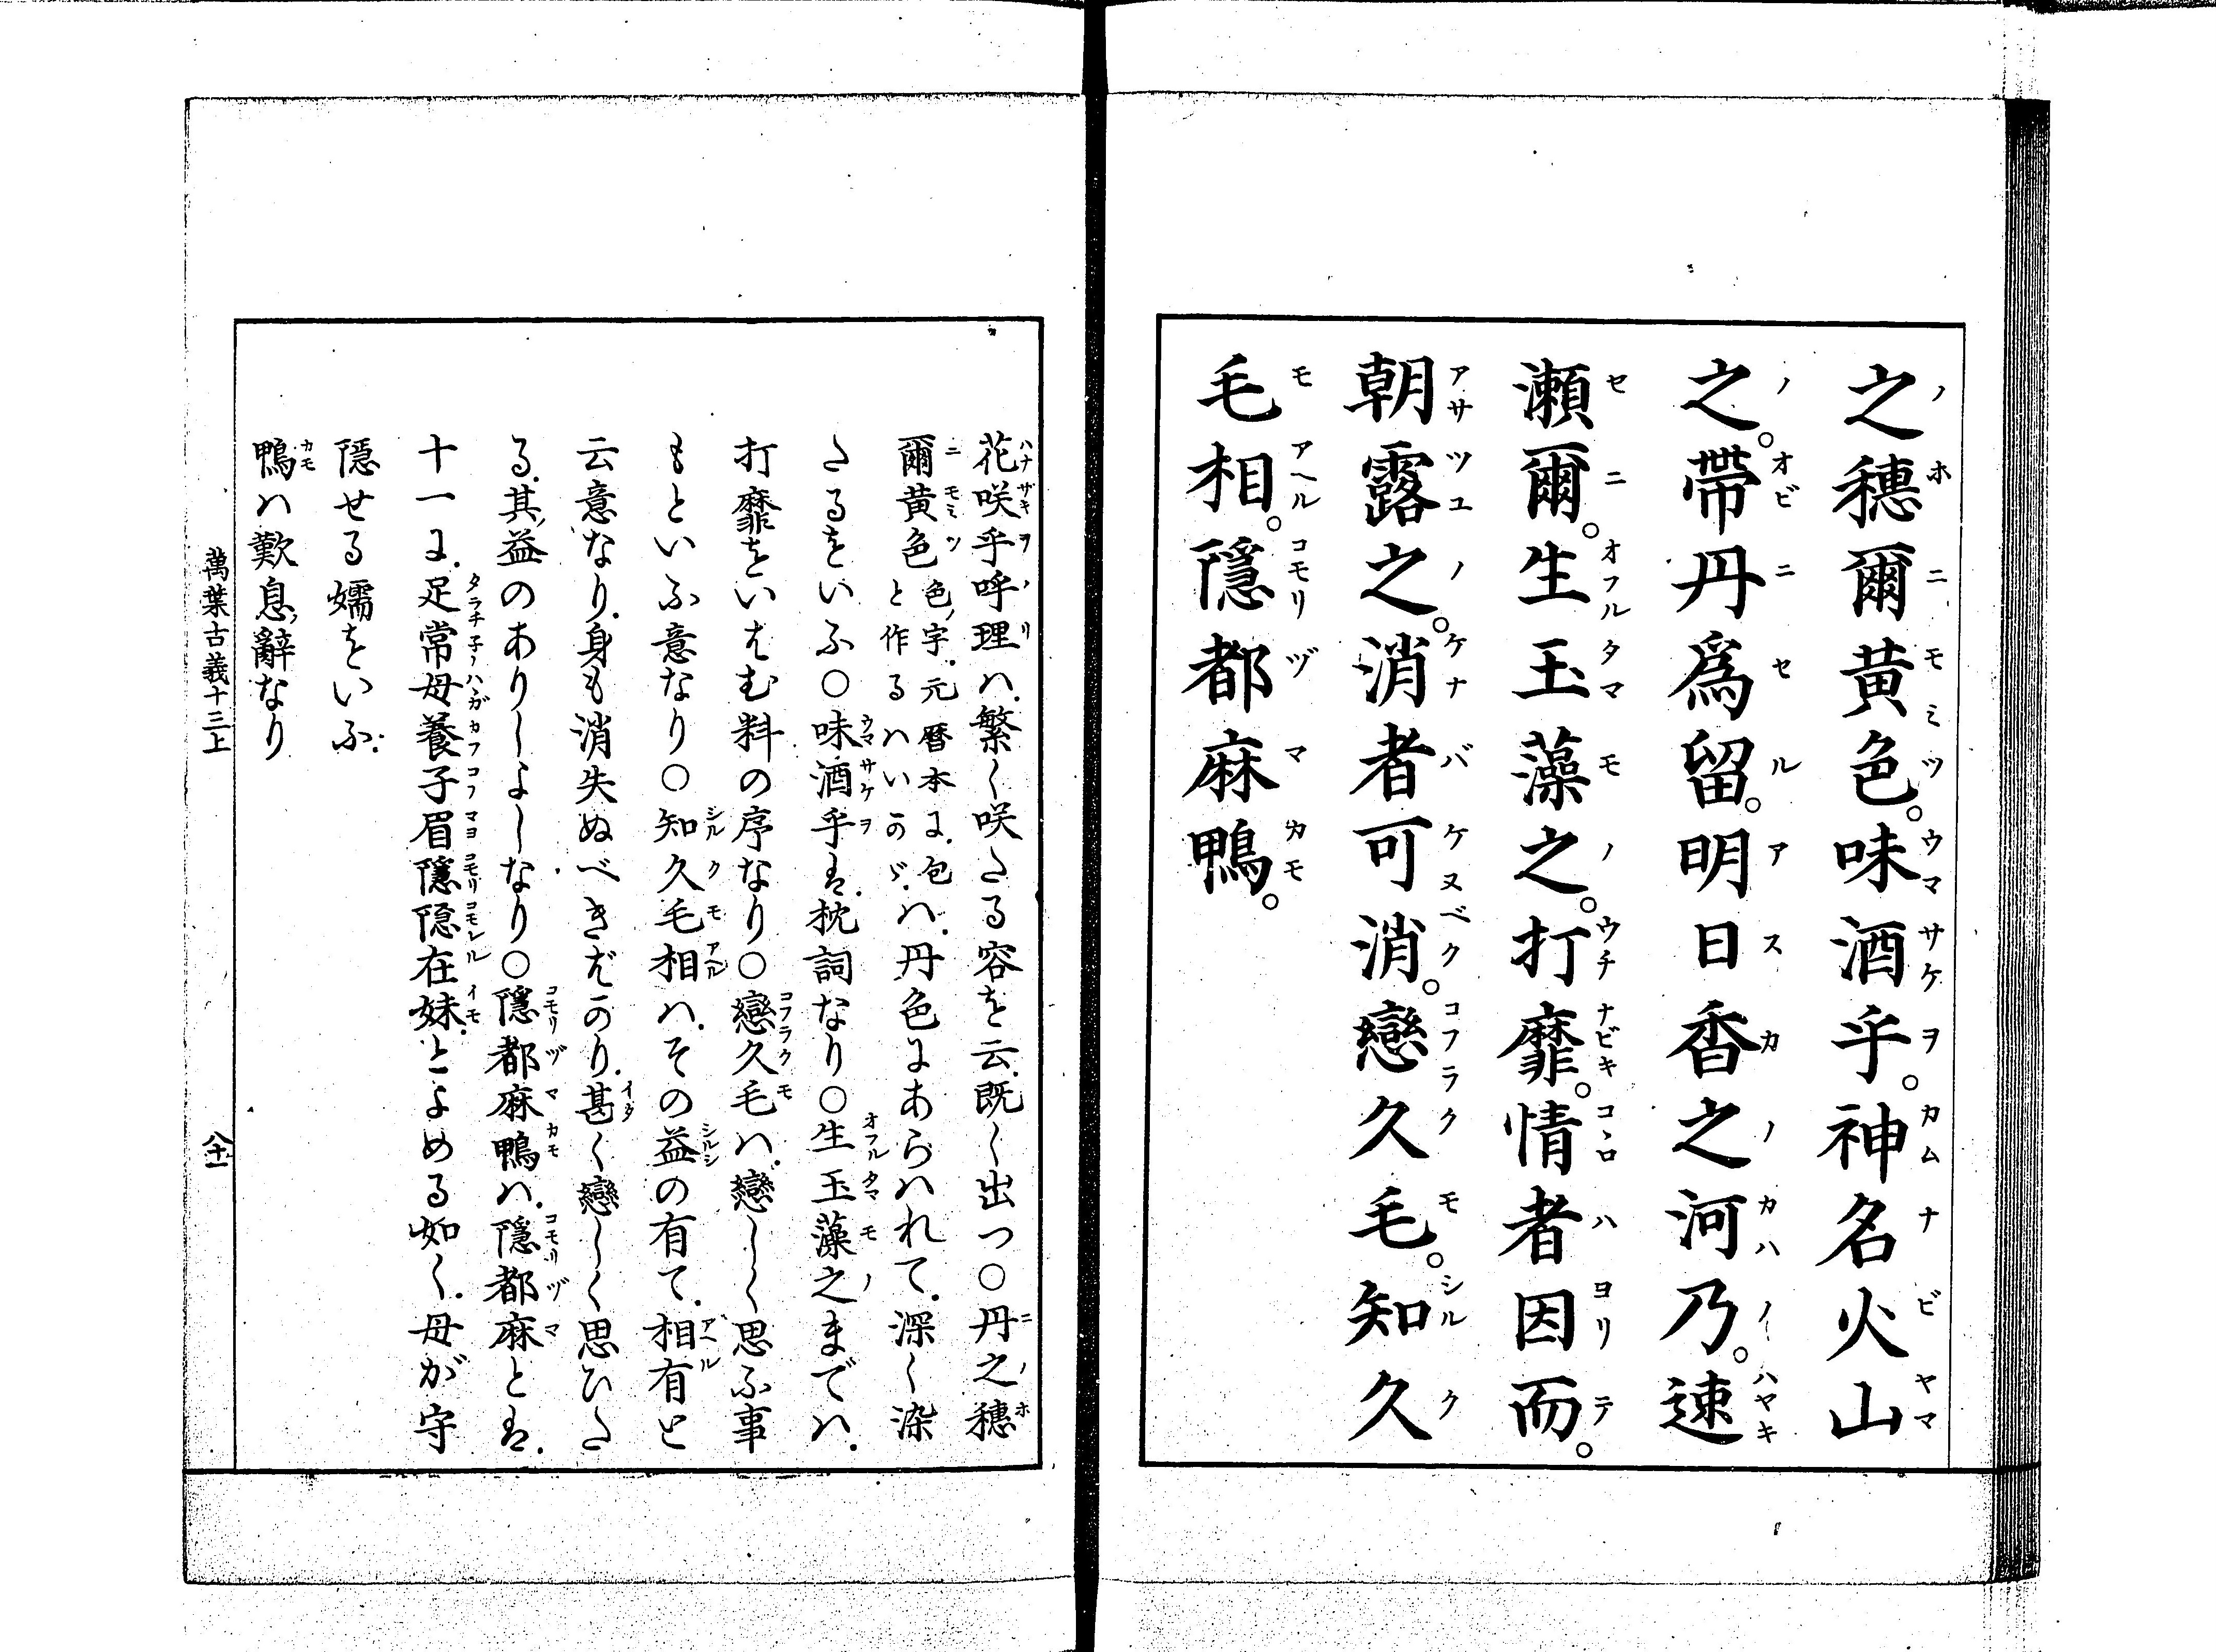 之穗爾黃色。味酒乎。神名火山
之。帶丹爲留。明日香之河乃。速
瀬爾。生玉藻之。打靡。情者因而。
朝露之。消者可消。戀久毛。知久
毛相。隱都麻鴨。
花咲乎呼理ハ、繁く咲たる容を云、既く出つ○丹之穗
爾黄色色ノ字、元暦本に、包と作るハいかゞ、ハ、丹色にあらハれて、深く染
たるをいふ○味酒乎は、枕詞なり○生玉藻之までハ、
打靡をいはむ料の序なり○戀久毛ハ、戀しく思ふ事
もといふ意なり○知久毛相ハ、その益の有て、相有と
云意なり、身も消失ぬべきばかり、甚く戀しく思ひた
る、其ノ益のありしよしなり○隱都麻鴨ハ、隱都麻とは、
十一に、足常母養子眉隱隱在妹、とよめる如く、母が守
隱せる孀をいふ、
鴨ハ歎息ノ辭なり
萬葉古義十三上
八十一